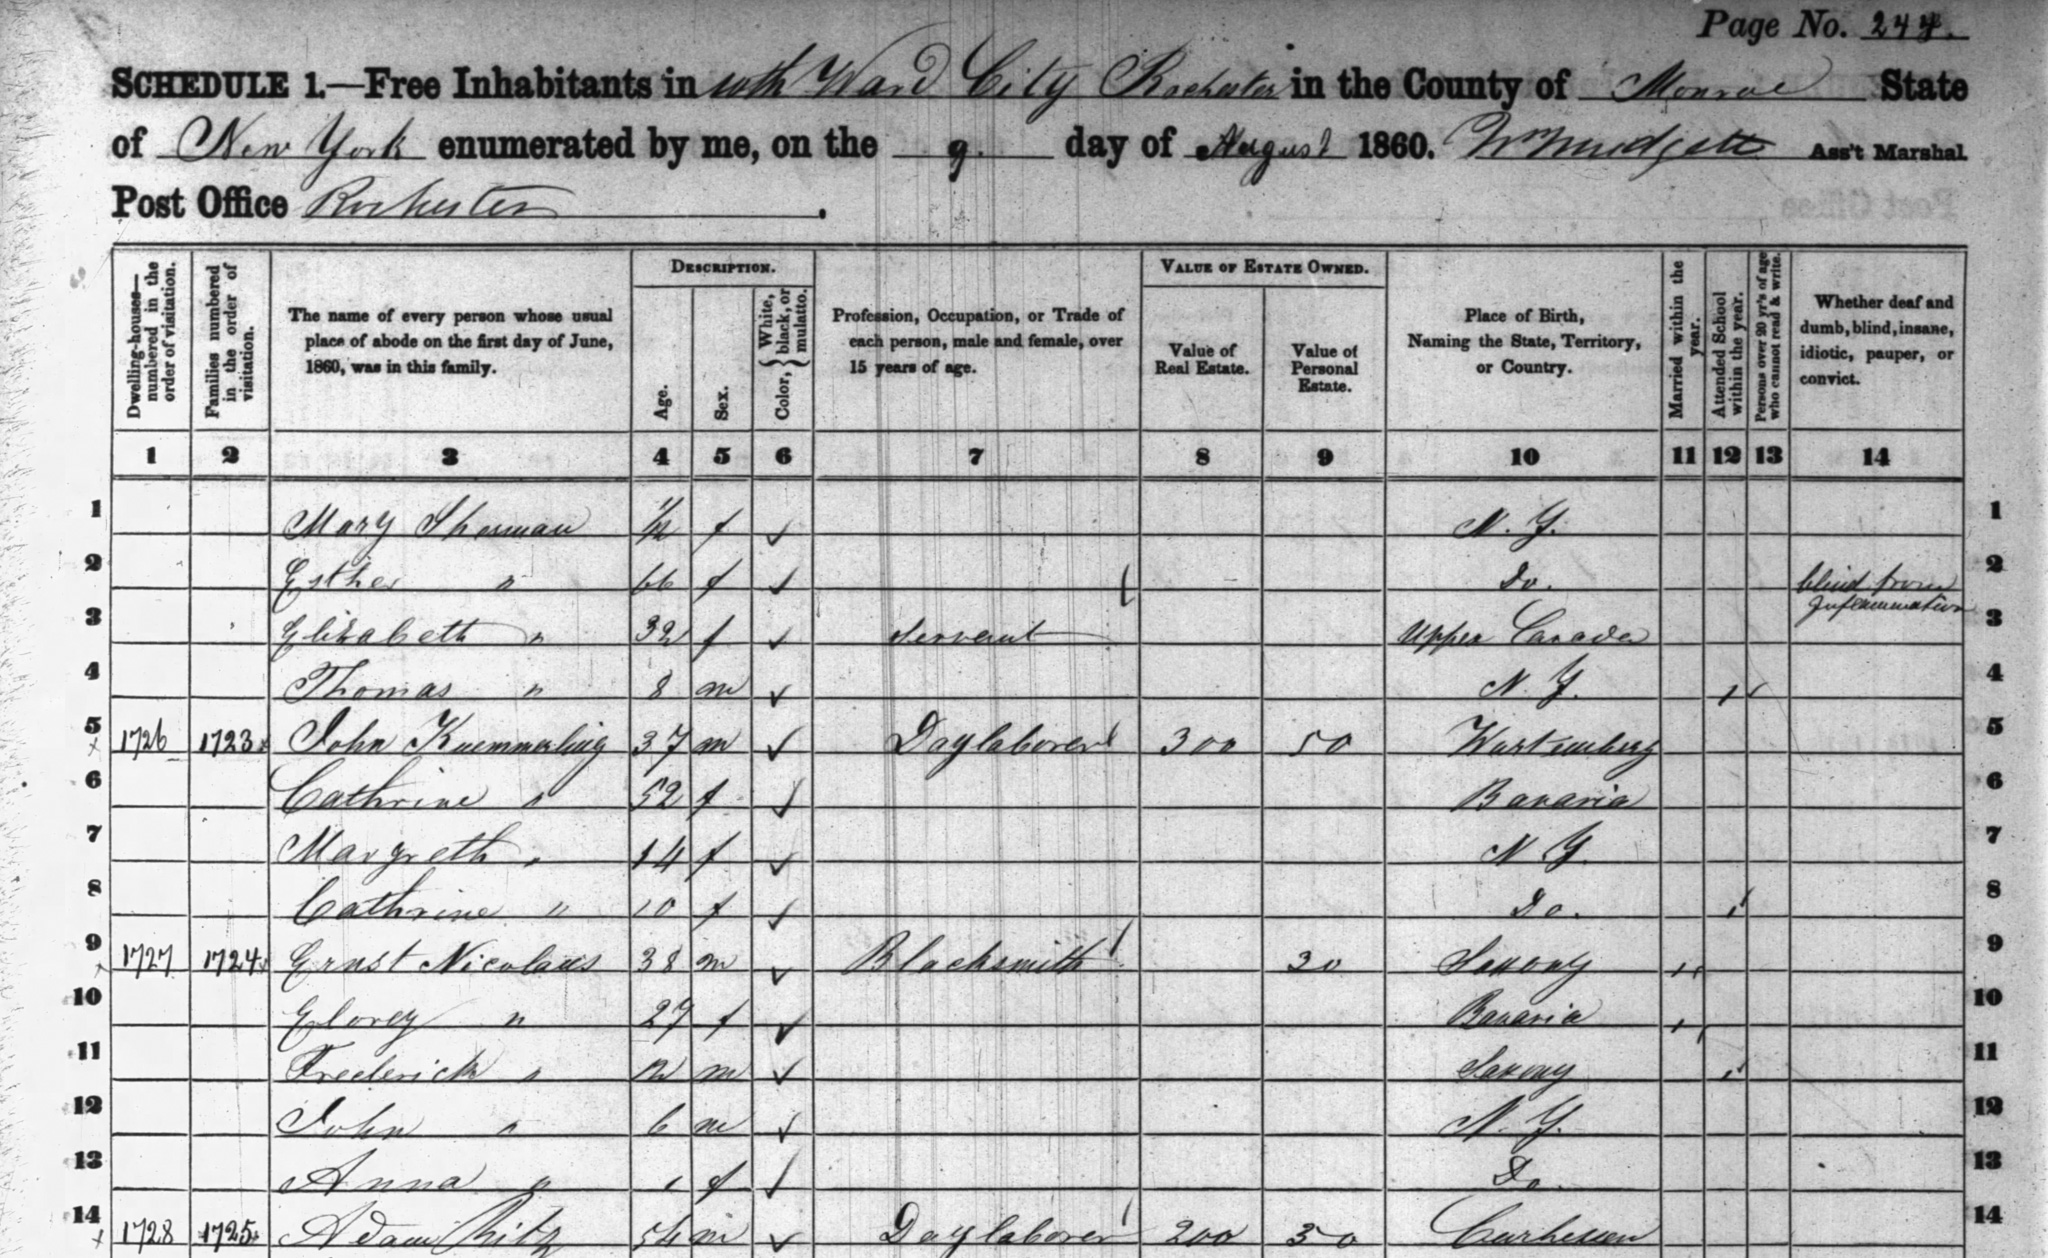 Page No. 244.
SCHEDULE 1.—Free Inhabitants in 10th Ward City Rochester in the County of Monroe State
of New York enumerated by me, on the 9. day of August 1860. Wm Mudgett Ass't Marshal
Post Office Rochester.
Dwelling-houses—numbered in the order of visitation.
Families numbered in the order of visitation.
The name of every person whose usual place of abode on the first day of June, 1860, was in this family.
DESCRIPTION.
Age.
Sex.
Color, { White, black, or mulatto.
Profession, Occupation, or Trade of each person, male and female, over 15 years of age.
VALUE OF ESTATE OWNED.
Value of Real Estate.
Value of Personal Estate.
Place of Birth, Naming the State, Territory, or Country.
Married within the year.
Attended School within the year.
Persons over 20 yr's of age who cannot read & write.
Whether deaf and dumb, blind, insane, idiotic, pauper, or convict.
1 2 3 4 5 6 7 8 9 10 11 12 13 14
1 Mary Sherman 1/12 f ✓ N. Y. 1
2 Esther " 66 f ✓ Do. blind from Inflammation 2
3 Elizabeth " 32 f ✓ Servant Upper Canada 3
4 Thomas " 8 m ✓ N. Y. 4
5 1726 1723 John Kuemmerling 37 m ✓ Daylaborer 300 50 Wurtemberg 5
6 Cathrine " 52 f ✓ Bavaria 6
7 Margreth " 14 f ✓ N. Y. 7
8 Cathrine " 10 f ✓ Do. 8
9 1727 1724 Ernst Nicolaus 38 m ✓ Blacksmith 30 Saxony 9
10 " 27 f ✓ Bavaria 10
11 Frederick " 12 m ✓ Saxony 11
12 John " 6 m ✓ N. Y. 12
13 Anna " 1 f ✓ Do. 13
14 1728 1725 Adam Ritz 54 m ✓ Daylaborer 200 50 Curhessen 14